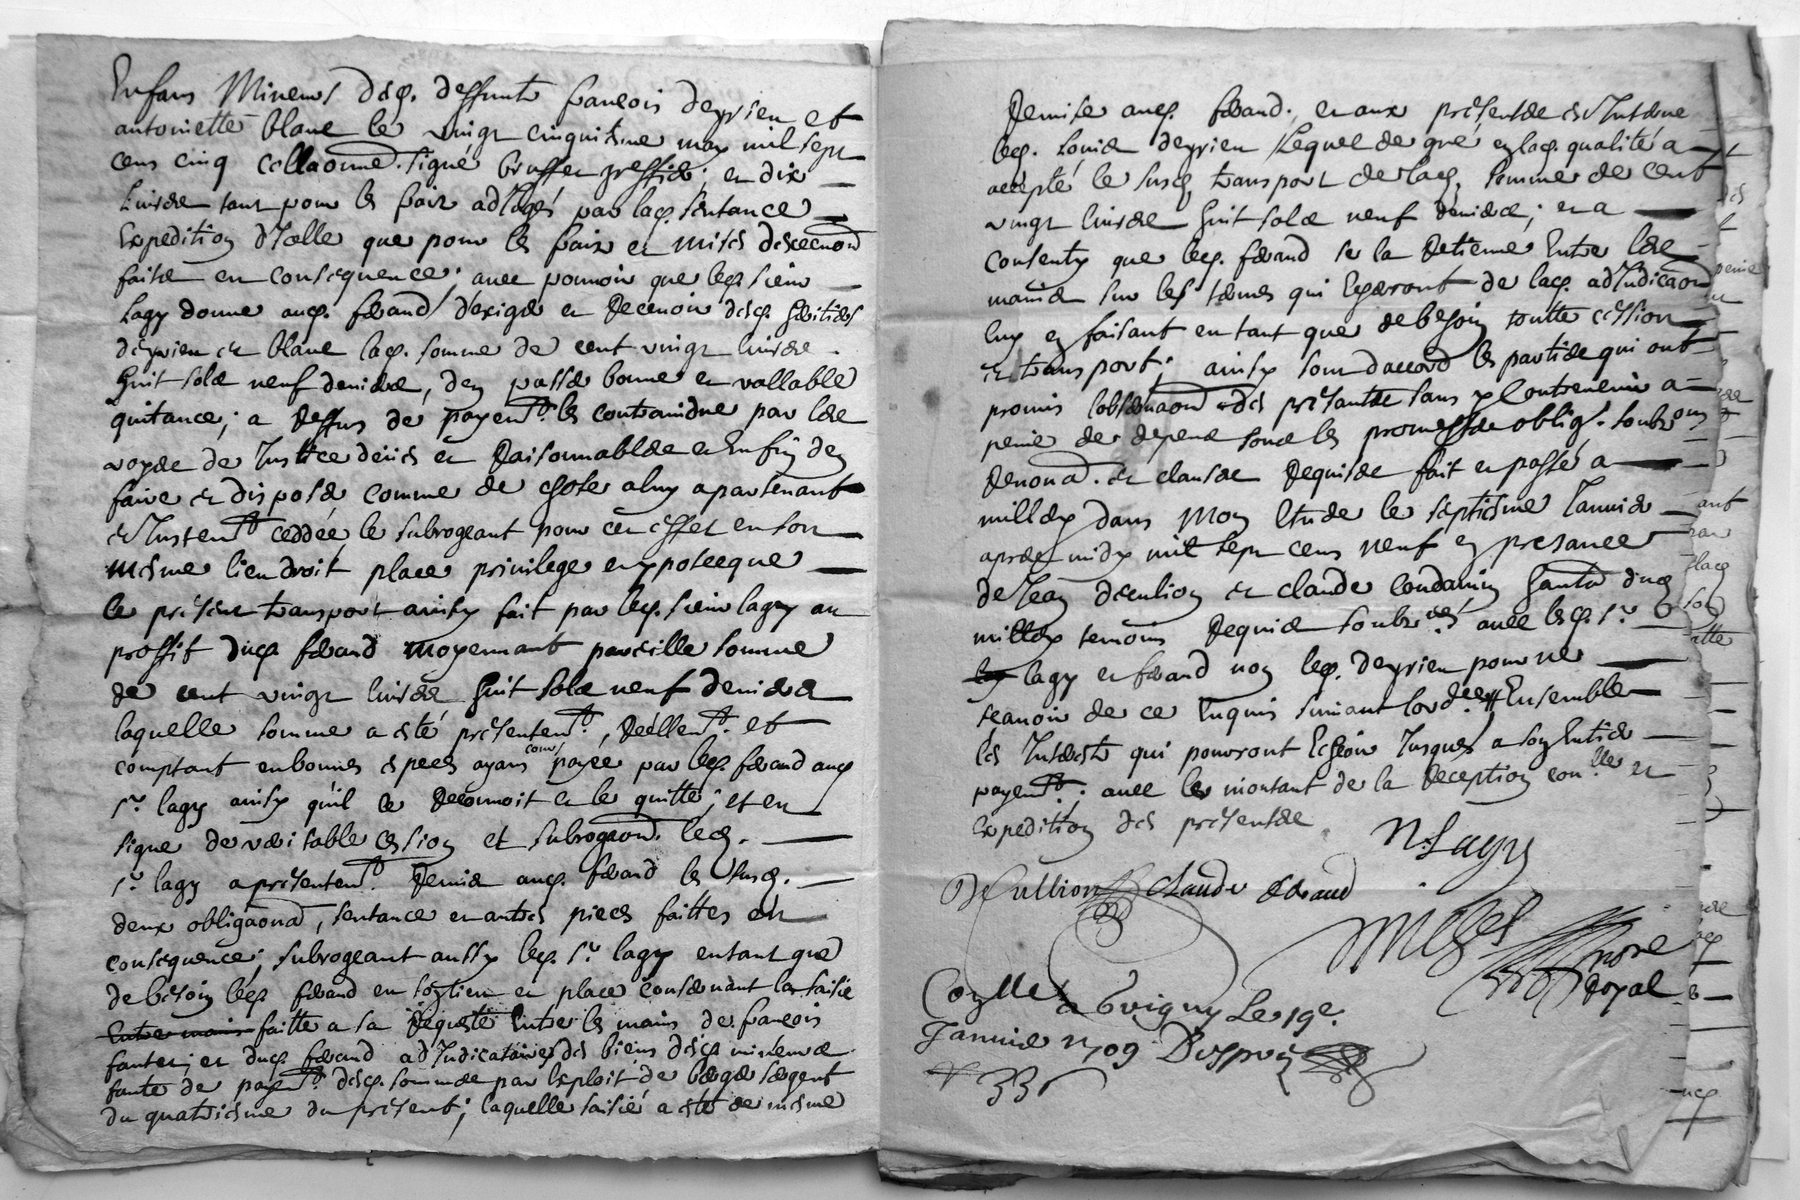 Enfans Mineurs desd. deffunts françois deyrieu et
antoinette blanc le vingt cinquiesme may mil sept
cens cinq collaonné signé greffier; et dix
livres tant pour les frais adjugés par lad. sentance
Expedition d'Icelle que pour les frais et mises d'execuon
faite en consequence; avec pouvoir que led. sieur
Lagy donne aud. feraud d'exiger et Recevoir desd. heritiers
deyrieu et blanc lad. somme de cent vingt livres
huit sols neuf deniers, d'en passer bonne et vallable
quitance; a Reffus de payemt. les contraindre par les
voyes de Justice deües et Raisonnables et Enfin den
faire et disposer comme de chose a luy apartenant
et Justemt. ceddée le subrogeant pour cet effet en son
mesme lieu droit place privilege et ypotecque
le present transport ainsy fait par led. sieur lagy au
proffit dud. feraud moyennant pareille somme
de cent vingt livres huit sols neuf deniers
laquelle somme a esté presentemt., Réellemt. et
comptant en bonnes especes ayans cours payée par led. feraud aud.
sr. lagy ainsy qu'il le Reconnoit et le quitte; et en
signe de veritable cession et subrogaon. led.
sr. lagy a presentemt. Remis aud. feraud les susd.
deux obligaons, sentance et autres pieces faittes en
consequence; subrogeant aussy led. sr. lagy entant que
de besoin led. feraud en son lieu et place concernant la saisie
Entre mains faitte a sa Requeste Entre les mains de françois
; et dud. feraud adJudicataires des biens desd. mineurs
faute de payemt. desd. sommes par Exploit de sergent
du quatriesme du présent; laquelle saisie a esté de mesme
Remise aud. feraud. et aux presentes est Intervenu
led. Louis deyrieu Lequel de gré en lad. qualité a
accepté le susd. transport de lad. somme de cent
vingt livres huit sols neuf deniers; et a
consenty que led. feraud se la Retienne Entre les
mains sur les termes qui de lad. adJudicaon
luy en faisant en tant que de besoin toutte cession
et transport; ainsy sont d'accord les parties qui ont
promis l'observaon des présentes sans y Contrevenir a
peine de depens sous les promesses oblig.
Renons. et clauses Requises fait et passé a
millery dans Mon Etude le septiesme Janvier
apres midy mil sept cens neuf en presance
de Jean decullion et claude condamin dud.
millery temoins Requis avec lesd. srs.
lagy et feraud non led. deyrieu pour ne
scavoir de ce Enquis suivant l'ord.ce Ensemble
les Interests qui pourront Echeoir Jusques a son Entier
payemt.; avec le montant de la Reception et
Expedition des presentes
N. Lagy
DeCullion Claude feraud
nore
Royal
Conlle a brigny Le 19e.
Janvier 1709